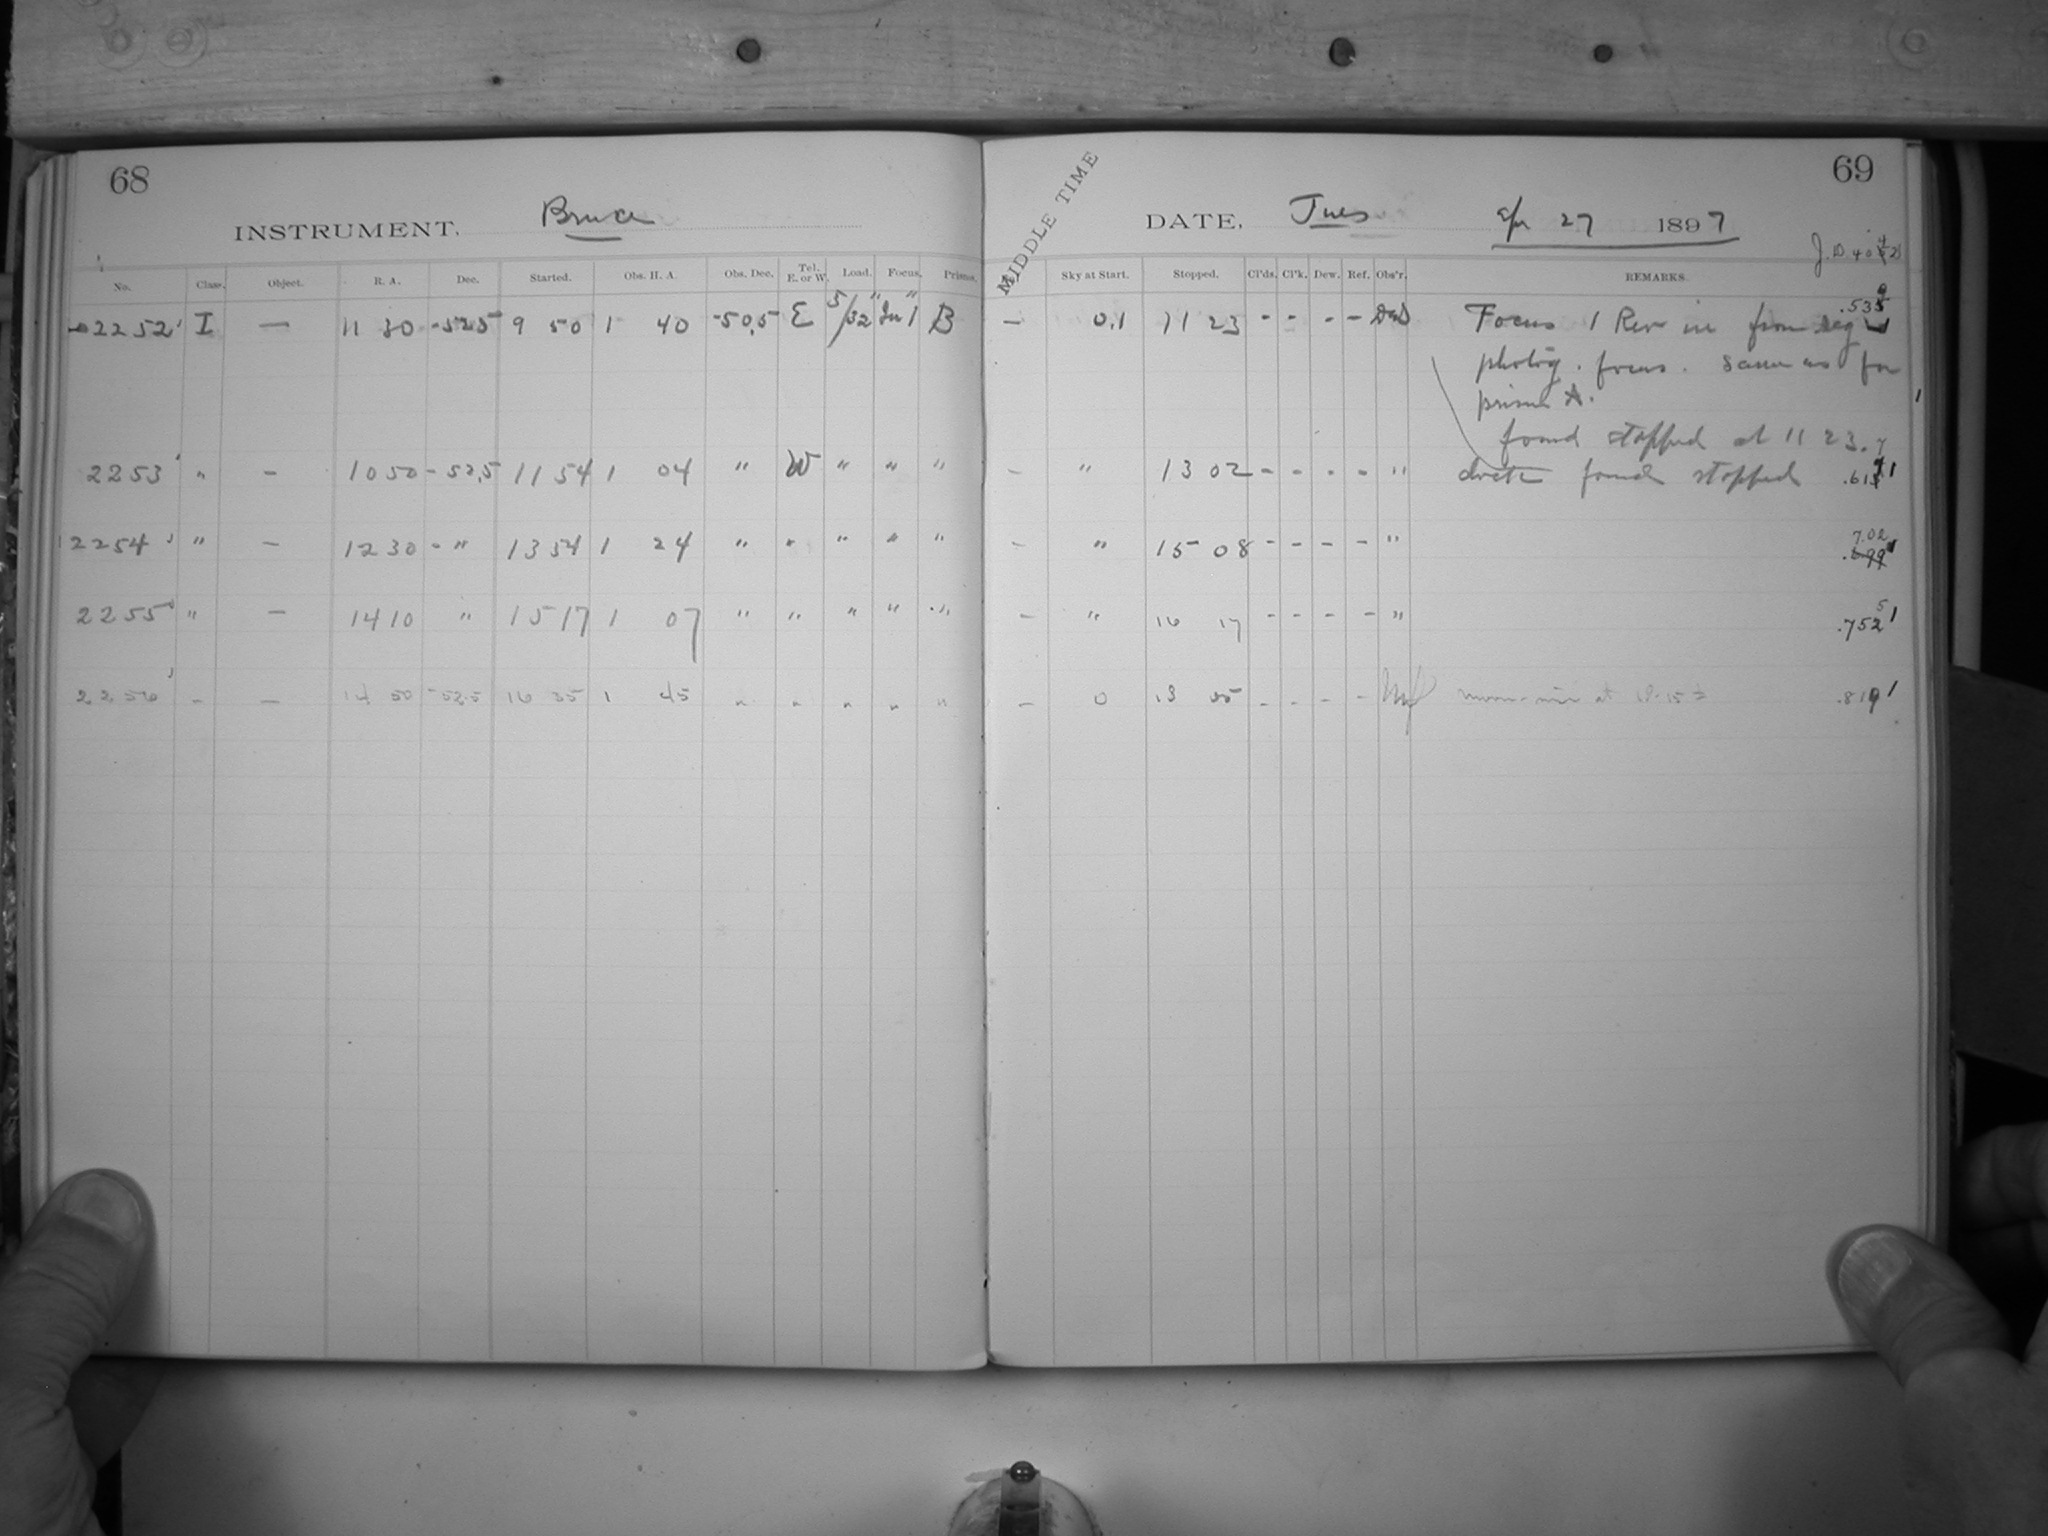 68
INSTRUMENT. Bruce
No. Class. Object. R. A. Dec. Started. Obs. H. A. Obs. Dec. Tel. E. or W. Load. Focus. Prisms.
2252 I — 11 30 -52.5 9 50 1 40 -50.5 E 5/32" In 1" B
2253 " - 10 50 -52.5 11 54 1 04 " W " " "
2254 " - 12 30 - " 13 54 1 24 " " " " "
2255 " - 14 10 " 15 17 1 07 " " " " "
2256 " - 14 50 -52.5 16 35 1 45 " " " " "
69
MIDDLE TIME
DATE, Tues Apr 27 1897
Sky at Start. Stopped. Cl'ds. Cl'k. Dew. Ref. Obs'r. REMARKS
- 0.1 11 23 - - - - Focus 1 Rev in from reg .535
photog. focus. same as for
prism A.
found stopped at 11 23.
- " 13 02 - - - - " found stopped .61
- " 15 08 - - - - " 7.02
.699
- " 16 17 - - - - " .752 5
- 0 - - - - at .819